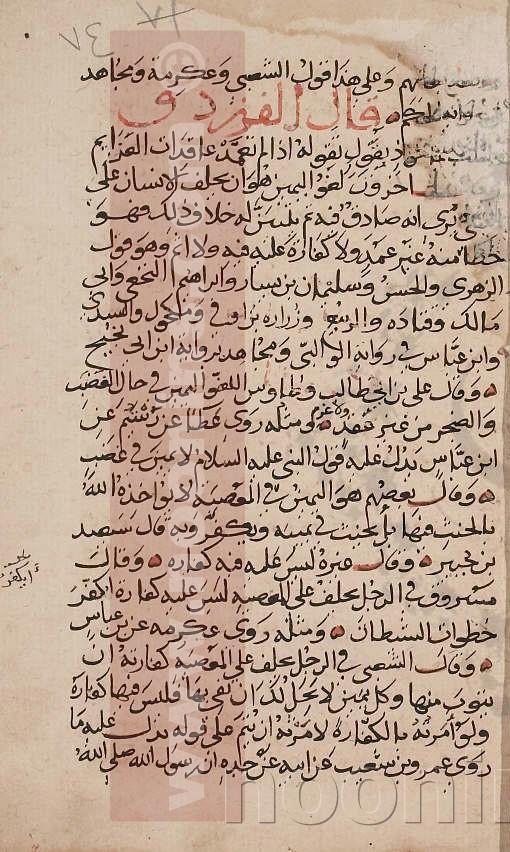 ٧٤
وعلى هذا قول الشعبي وعكرمة ومجاهد
قال الفرزدق
بقول تقوله اذا لم تعمد عاقدات العزايم
اخرون لغو اليمين هو ان يحلف الانسان على
يرى انه صادق فيه ثم يتبين له خلاف ذلك فهو
خطأ منه غير عمد ولا كفارة عليه فيه ولا اثم وهو قول
الزهري والحسن وسليمان بن يسار وابراهيم النخعي وابي
مالك وقتادة والربيع وزرارة بن اوفى ومكحول والسدي
وابن عباس في رواية الوالبي ومجاهد برواية ابن ابي نجيح
وقال علي بن ابي طالب وطاوس اللغو اليمين في حال الغضب
والضجر من غير عقد ولا عزم ومثله روى عطا عن عن
ابن عباس يدل عليه قول النبي عليه السلام لا يمين في غضب
وقال بعضهم هو اليمين في المعصية لا يواخذه الله
بالحنث فيها بل يحنث في يمينه ويكفر وبه قال سعيد
بن جبير وقال غيره ليس عليه فيه كفارة وقال
مسروق في الرجل يحلف على المعصية ليس عليه كفارة ايكفر
خطوات الشيطان ومثله روى عكرمه عن بن عباس
وقال الشعبي في الرجل يحلف على المعصية كفارته ان
يتوب منها وكل يمين لا يحل لك ان تفي بها فليس فيها كفارة
ولو امرته بالكفارة لامرته ان يتم على قوله يدل عليه ما
روى عمرو بن شعيب عن ابيه عن جده ان رسول الله صلى الله
ايكفر